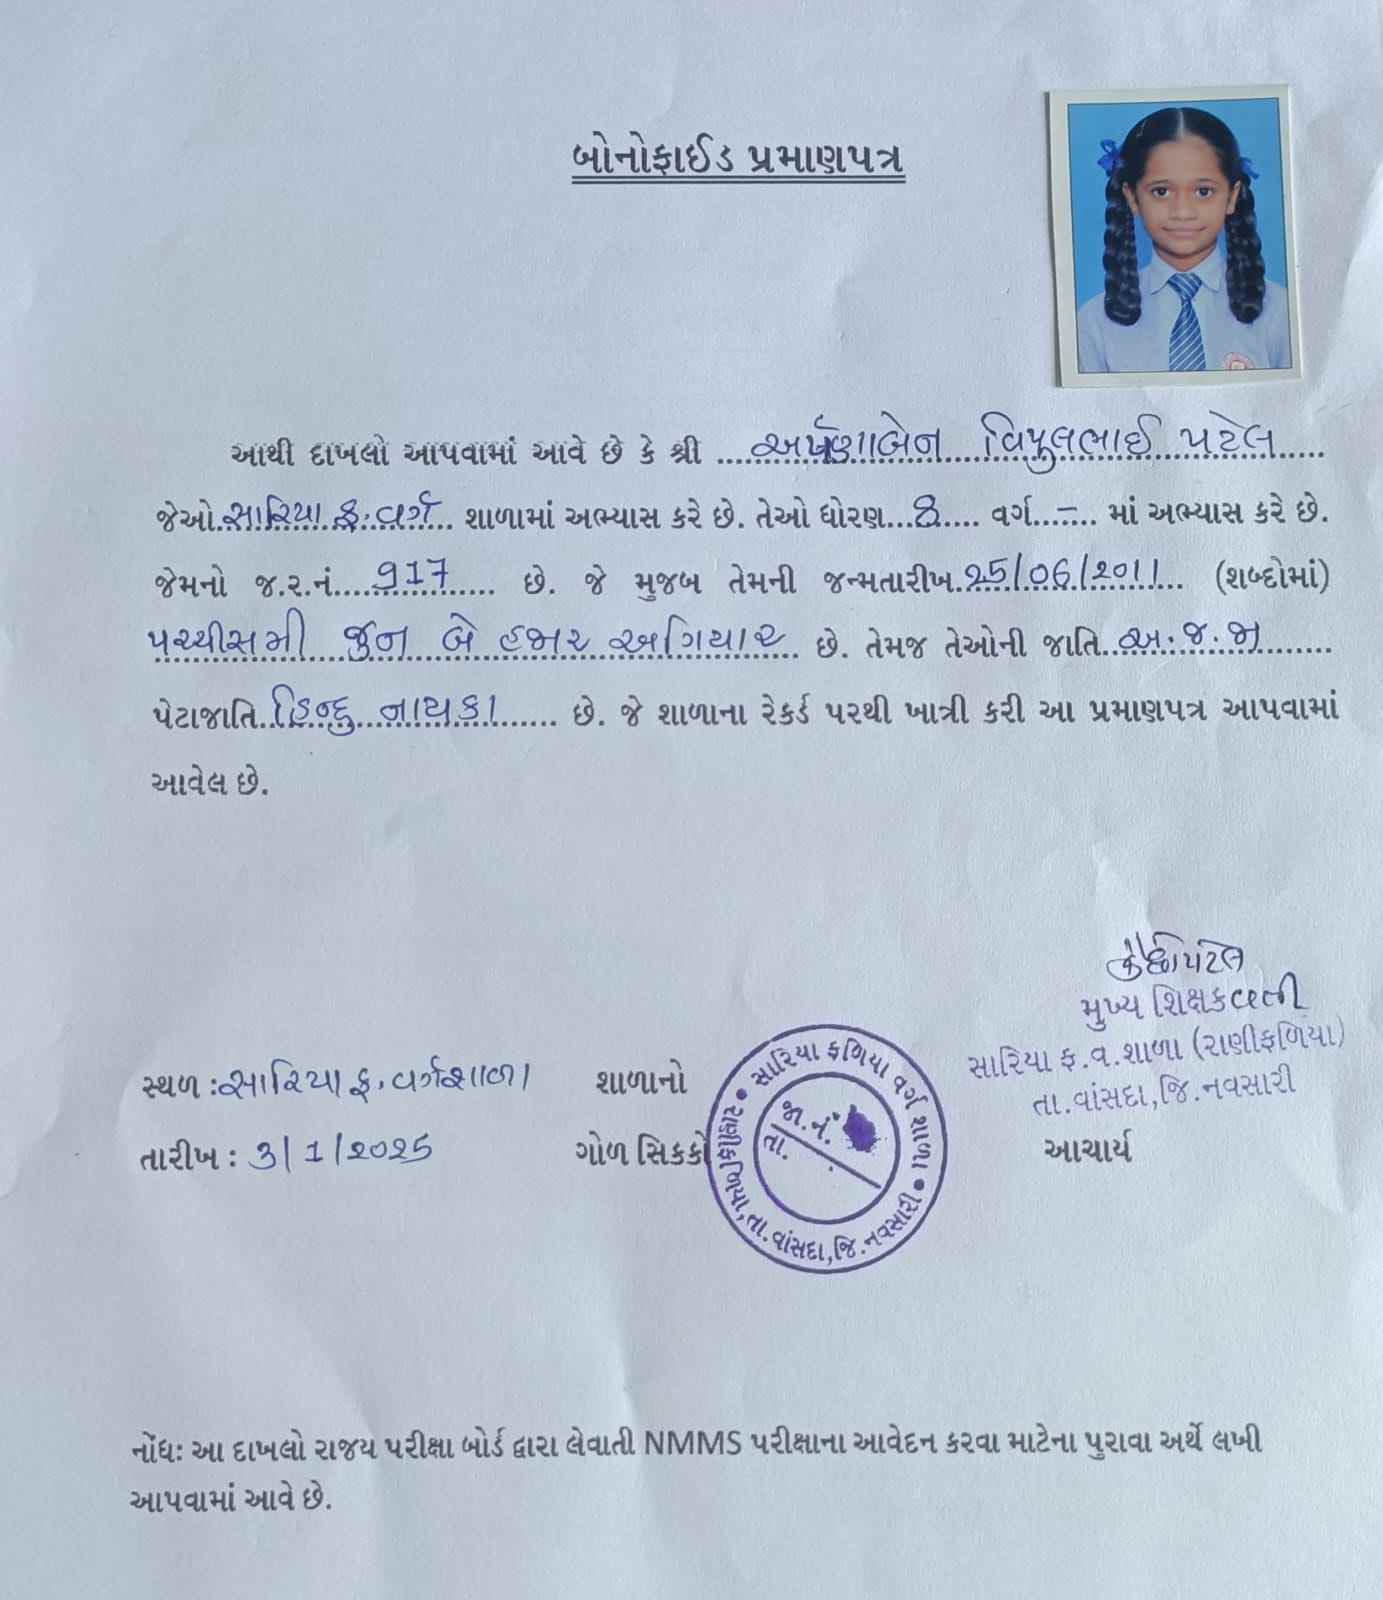 બોનોફાઈડ પ્રમાણપત્ર
આથી દાખલો આપવામાં આવે છે કે શ્રી અર્પણાબેન વિપુલભાઈ પટેલ
જેઓ સારિયા ફ. વર્ગ શાળામાં અભ્યાસ કરે છે. તેઓ ધોરણ 8 વર્ગ - માં અભ્યાસ કરે છે.
જેમનો જ.ર.નં. 917 છે. જે મુજબ તેમની જન્મતારીખ 25/06/2011 (શબ્દોમાં)
પચ્ચીસમી જુન બે હજાર અગિયાર છે. તેમજ તેઓની જાતિ અ.જ.જા
પેટાજાતિ હિન્દુ નાયકા છે. જે શાળાના રેકર્ડ પરથી ખાત્રી કરી આ પ્રમાણપત્ર આપવામાં
આવેલ છે.
પટેલ
મુખ્ય શિક્ષક
સારિયા ફ.વ.શાળા (રાણીફળિયા)
તા.વાંસદા,જિ.નવસારી
આચાર્ય
સ્થળ : સારિયા ફ. વર્ગશાળા
તારીખ : 3/1/2025
શાળાનો
ગોળ સિક્કો
સારિયા ફળિયા વર્ગ શાળા
રાણીફળિયા, તા.વાંસદા, જિ.નવસારી
જા.નં.
તા.
નોંધઃ આ દાખલો રાજય પરીક્ષા બોર્ડ દ્વારા લેવાતી NMMS પરીક્ષાના આવેદન કરવા માટેના પુરાવા અર્થે લખી
આપવામાં આવે છે.